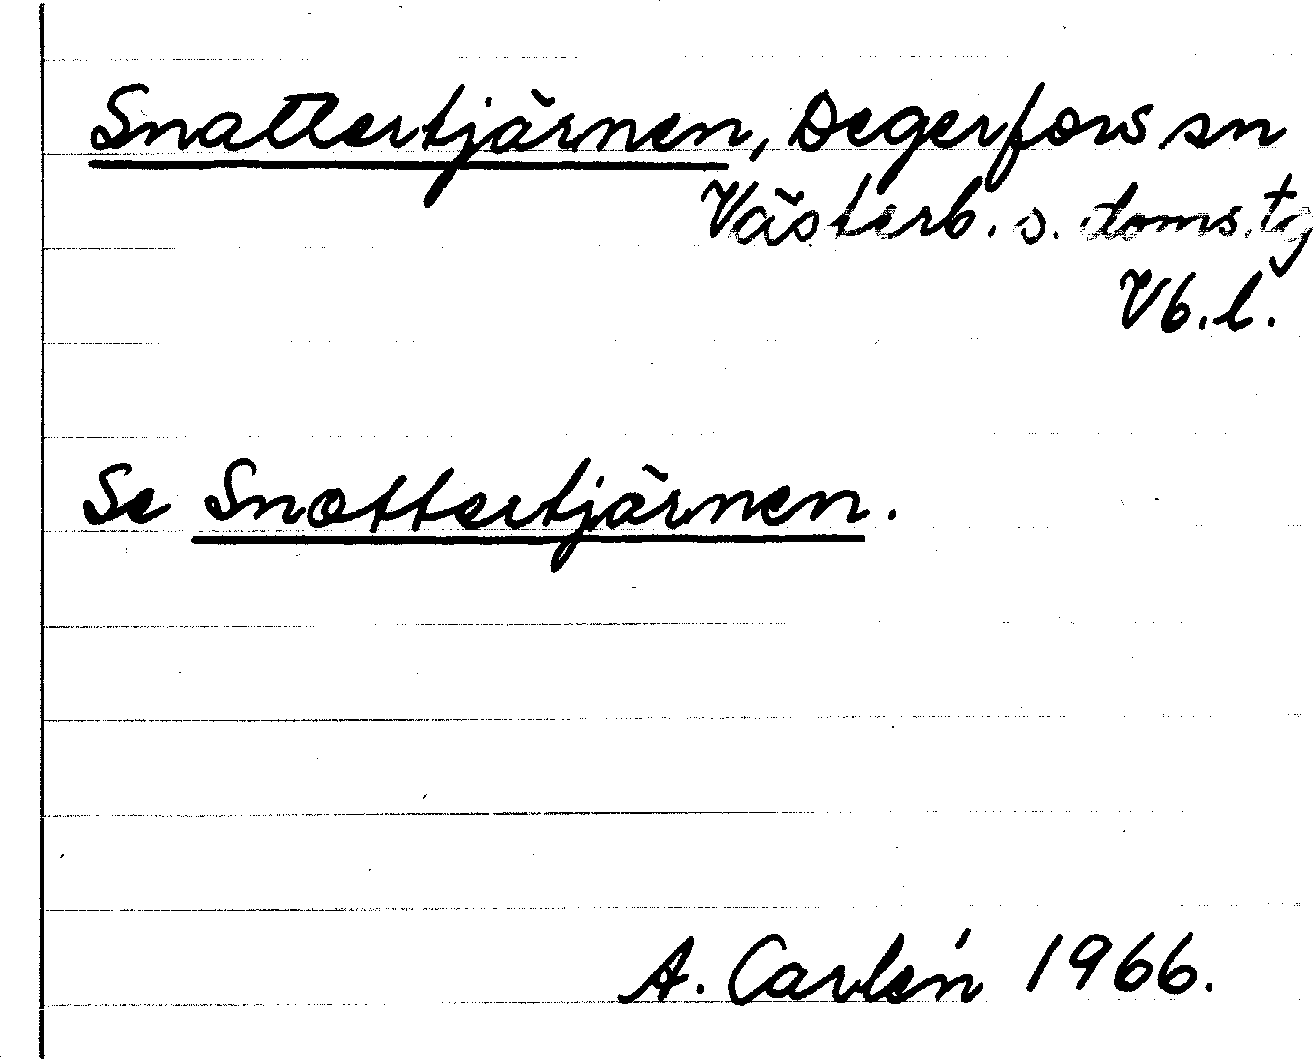 Snattertjärnen, Degerfors sn
Västerb. s. doms.tg
Vb.l.
Se Snottertjärnen.
A. Carlén 1966.